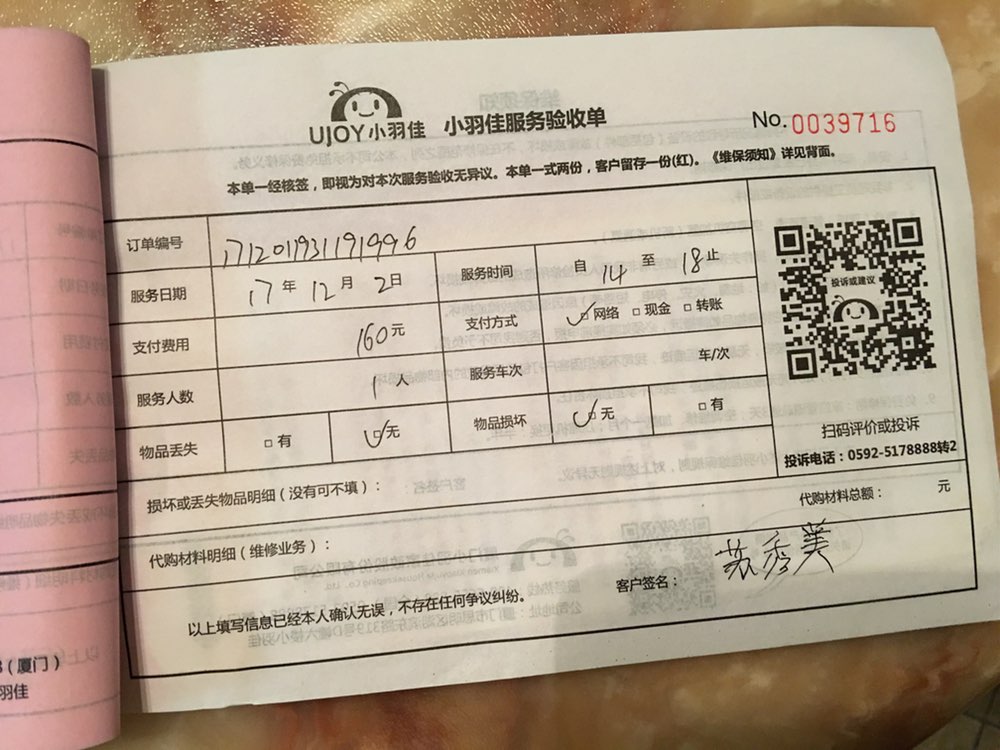 UJOY小羽佳 小羽佳服务验收单 No.0039716
本单一经核签，即视为对本次服务验收无异议。本单一式两份，客户留存一份(红)。《维保须知》详见背面。
订单编号 171201931191996
服务日期 17年12月2日 服务时间 自14至18止
支付费用 160元 支付方式 ☑网络 □现金 □转账
服务人数 1人 服务车次 车/次
物品丢失 □有 ☑无 物品损坏 ☑无 □有
投诉或建议
扫码评价或投诉
投诉电话：0592-5178888转2
损坏或丢失物品明细（没有可不填）：
代购材料明细（维修业务）： 代购材料总额： 元
客户签名： 苏秀美
以上填写信息已经本人确认无误，不存在任何争议纠纷。
（厦门）
羽佳